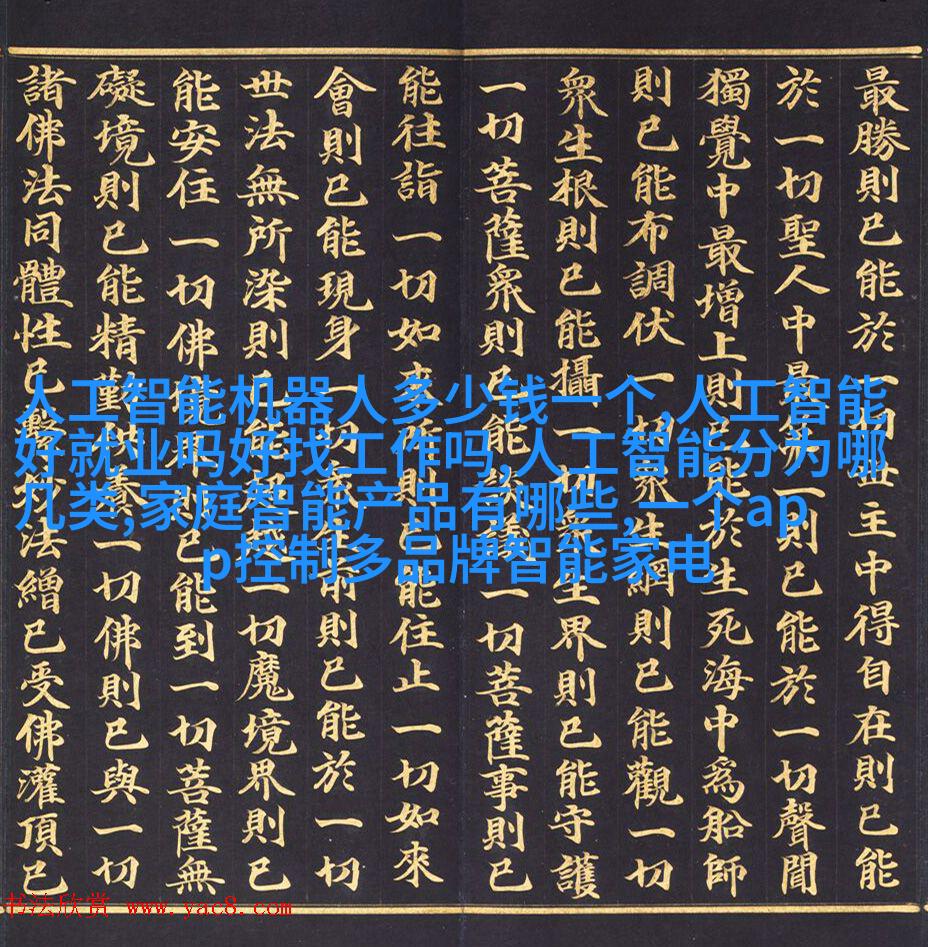 最勝則已能於一切世主中得自在則已能
於一切聖人中最第一則已能於一切聲聞
獨覺中最增上則已能於生死海中爲船師
則已能布調伏一切衆生網則已能觀一切
衆生根則已能攝一切衆生界則已能守護
一切菩薩衆則已能談議一切菩薩事則已
能往詣一切如來所則已能住止一切如來
會則已能現身一切衆生前則已能於一切
世法無所染則已能超越一切魔境界則已
能安住一切佛境界則已能到一切菩薩無
礙境則已能精勤供養一切佛則已與一切
諸佛法同體性已繫妙法繒已受佛灌頂已
人工智能机器人多少钱一个,人工智能
好就业吗好找工作吗,人工智能分为哪
几类,家庭智能产品有哪些,一个ap
p控制多品牌智能家电
书法欣赏 www.yac8.com